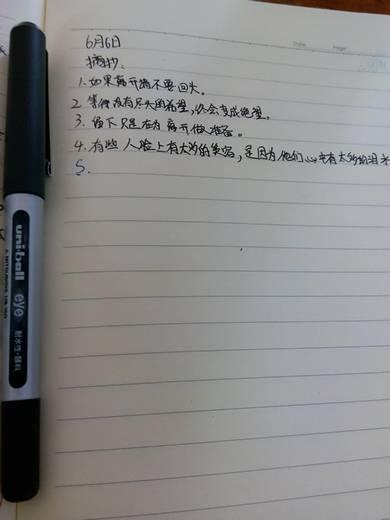 6月6日
摘抄:
1. 如果离开请不要回头。
2. 等待没有尽头的希望,终会变成绝望。
3. 留下只是在为离开做准备。
4. 有些人脸上有太多的笑容,是因为他们心中有太多的泪水
5.
uni-ball eye
耐水性·顔料